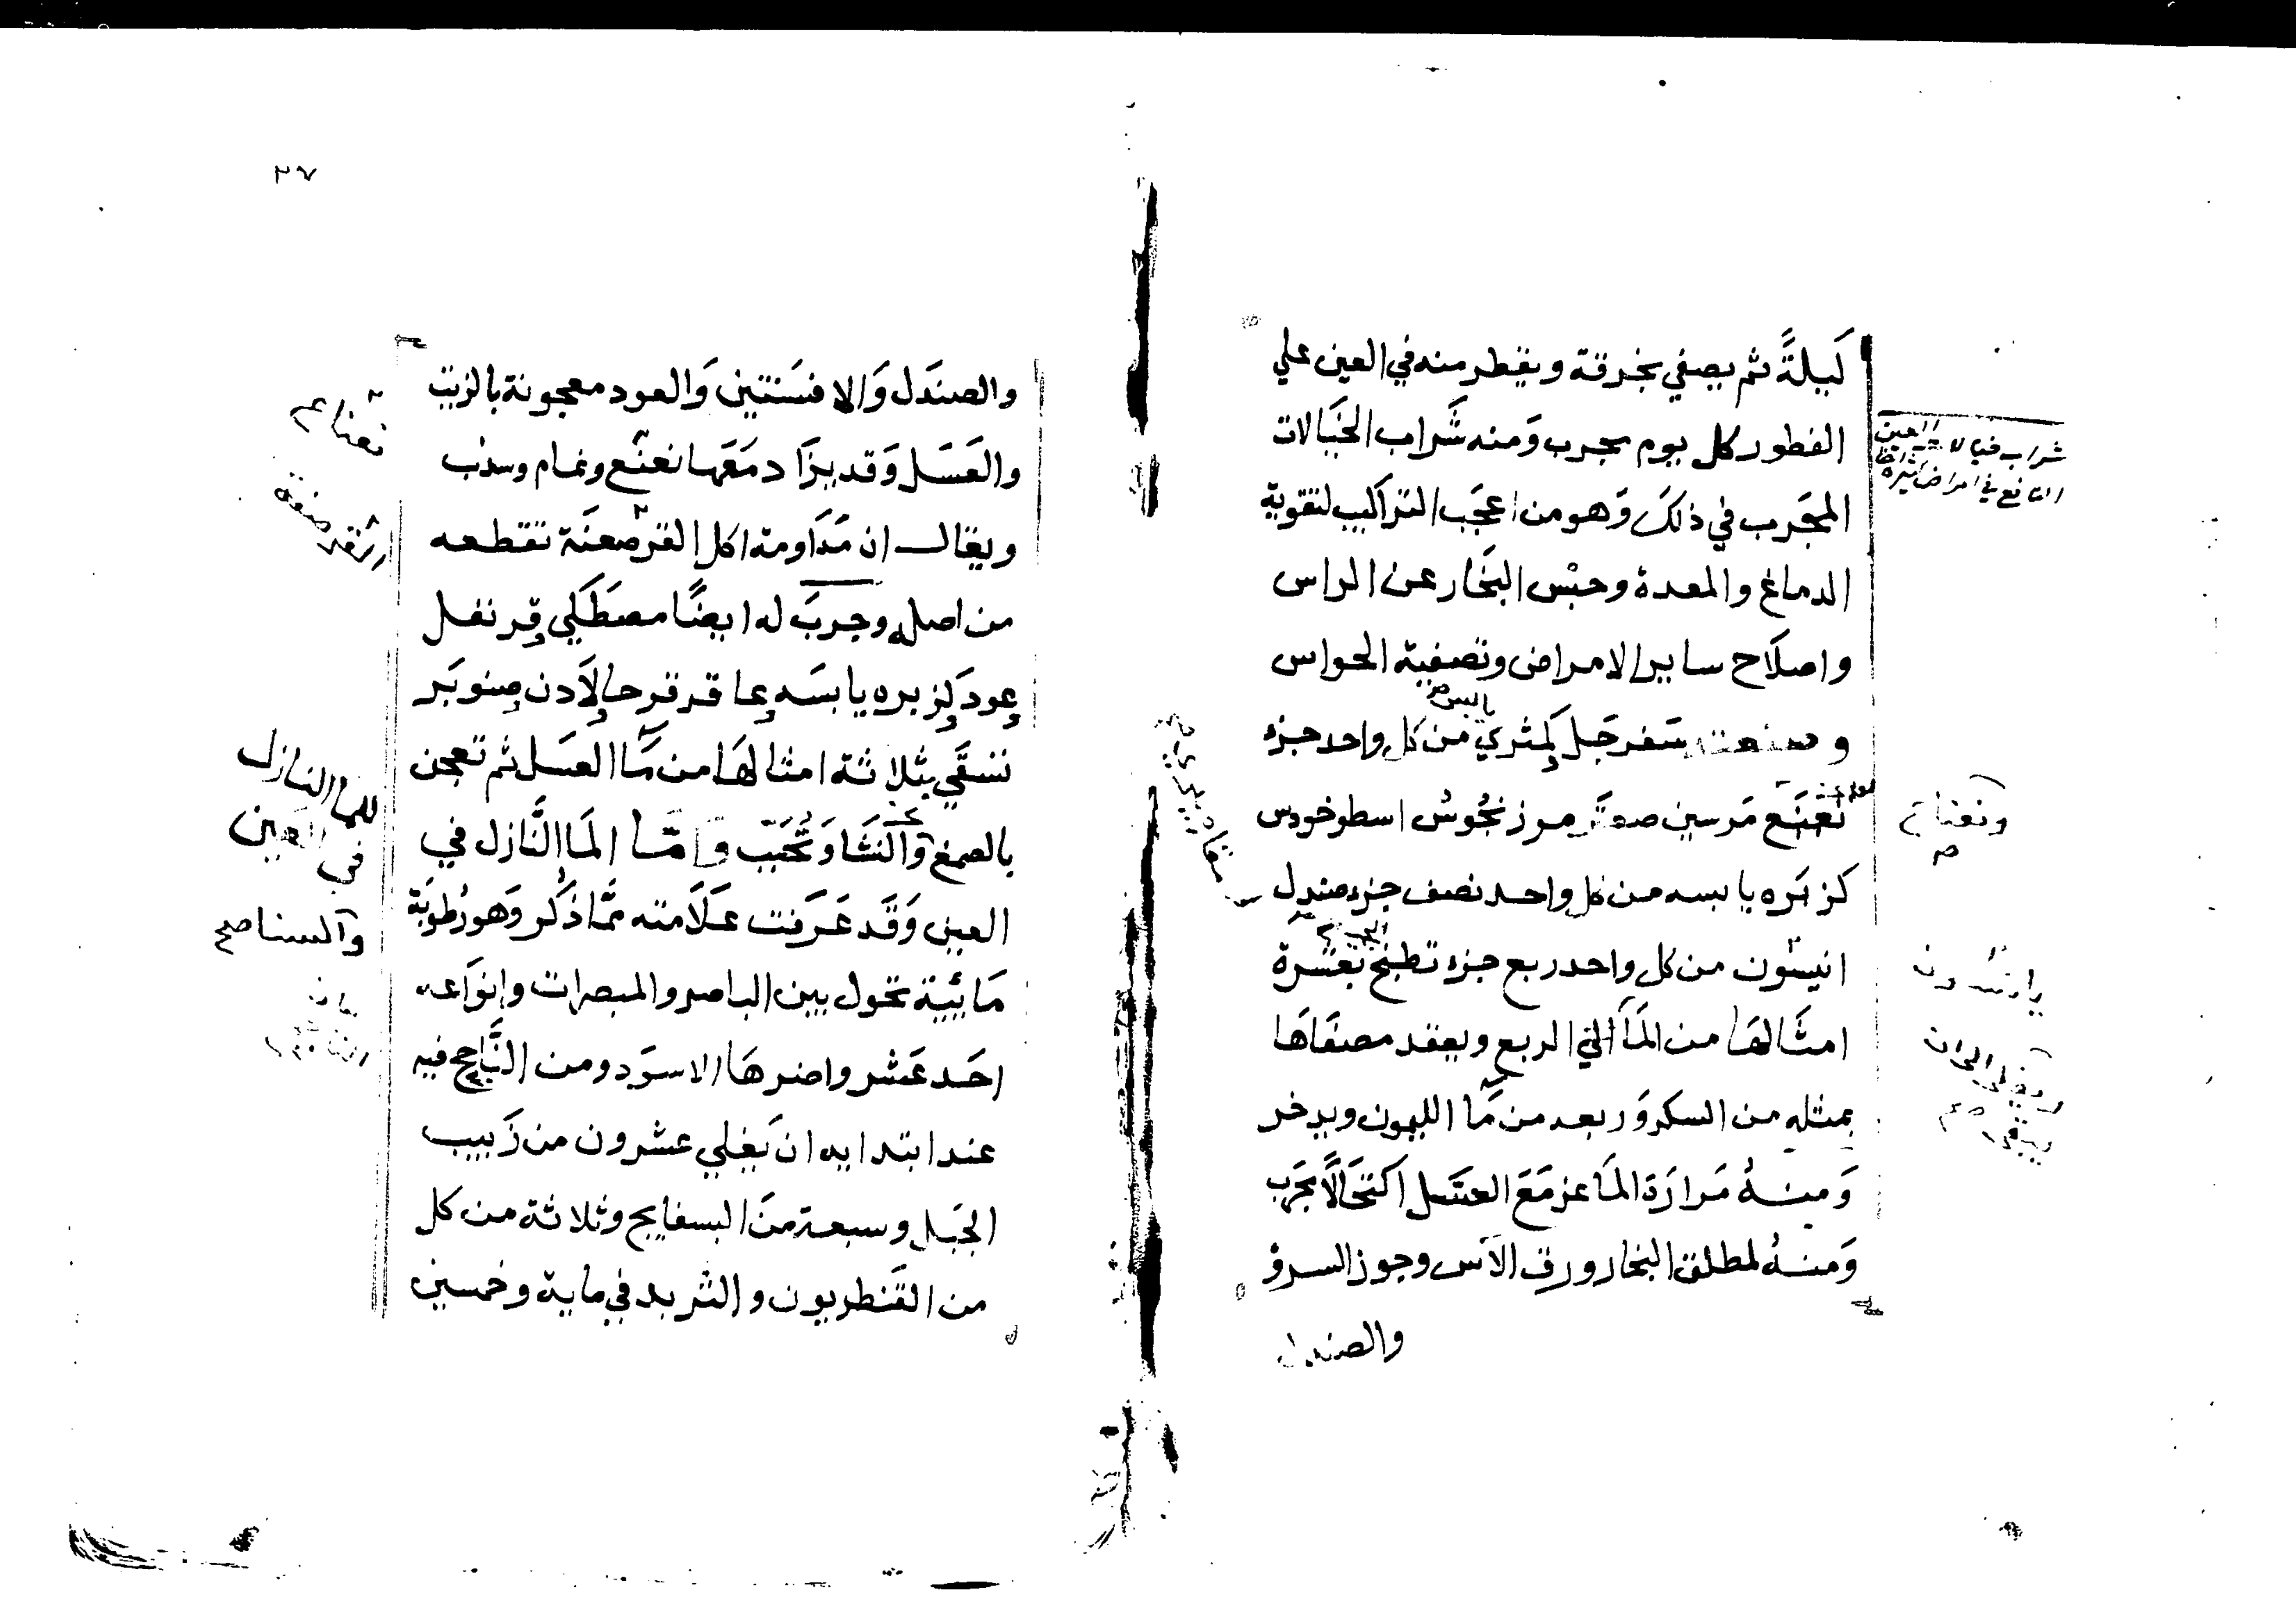 لَيلةً ثم يصفي بخرقة ويقطر منه في العين علي
الفطور كل يوم مجرب وَمنه شَراب الخَيَالات
المجَرب في ذلكَ وَهو من اعجَب التراكيب لتقوية
الدماغ والمعدة وحبْس البخَار عن الراس
واصلَاح ساير الامراض وتصفية الحواس
وصنعته سَفرجَل كمثري من كل واحد جزء
نعنَع مَرسين صعتَر مرزنجُوسُ اسطوخودس
كزبَره يابسه من كل واحد نصف جزء صندل
انيسُون من كل واحد ربع جزء تطبخ بعَشرة
امثَالهَا من المَآ الي الربع ويعقد مصفَاهَا
بمثله من السكر وَربعه من مَا الليمون ويدخر
وَمنهُ مَرارَة المَاعز مَعَ العسَل اكتحَالًا مجَرب
وَمنهُ لمطلق البخار ورق الآس وجوز السرو
والصندل
شراب خيالات العين
النافع في امراض كثيرة
ونعناع
صح
٣٧
والصندَل وَالافسَنتين وَالعود معجونة بالزيت
والعَسَل وَقد يزَاد مَعَها نعنَع ونمام وسذب
ويقال ان مَدَاومة اكل القرصعنَة تقطعه
من اصله وجربَ له ايضًا مصطَكي قرنفل
عود كزبره يابسَه عاقرقرحا لَادن صنوبَر
تسقَي بثلاثة امثالهَا من مَا العسَل ثم تعجن
بالصمغ وَالنشَا وَتُحَبب وَامَّا المَا النَّازل في
العين وَقَد عَرَفت عَلَامته ممَّا ذُكر وَهو رُطوبَة
مَائيَّة تحول بين الباصر والمبصرات وانوَاعه
احَد عَشر واضرهَا الاسوَد ومن النَّاجح فيه
عند ابتدايه ان يَغلي عشرون من زَبيب
الجَبَل وسبعة منَ البسفايج وثلاثة من كل
من القَنطريون والتربد في ماية وخمسين
نعناع
القرصعنة
للماء النازل
في العين
والسنا صح